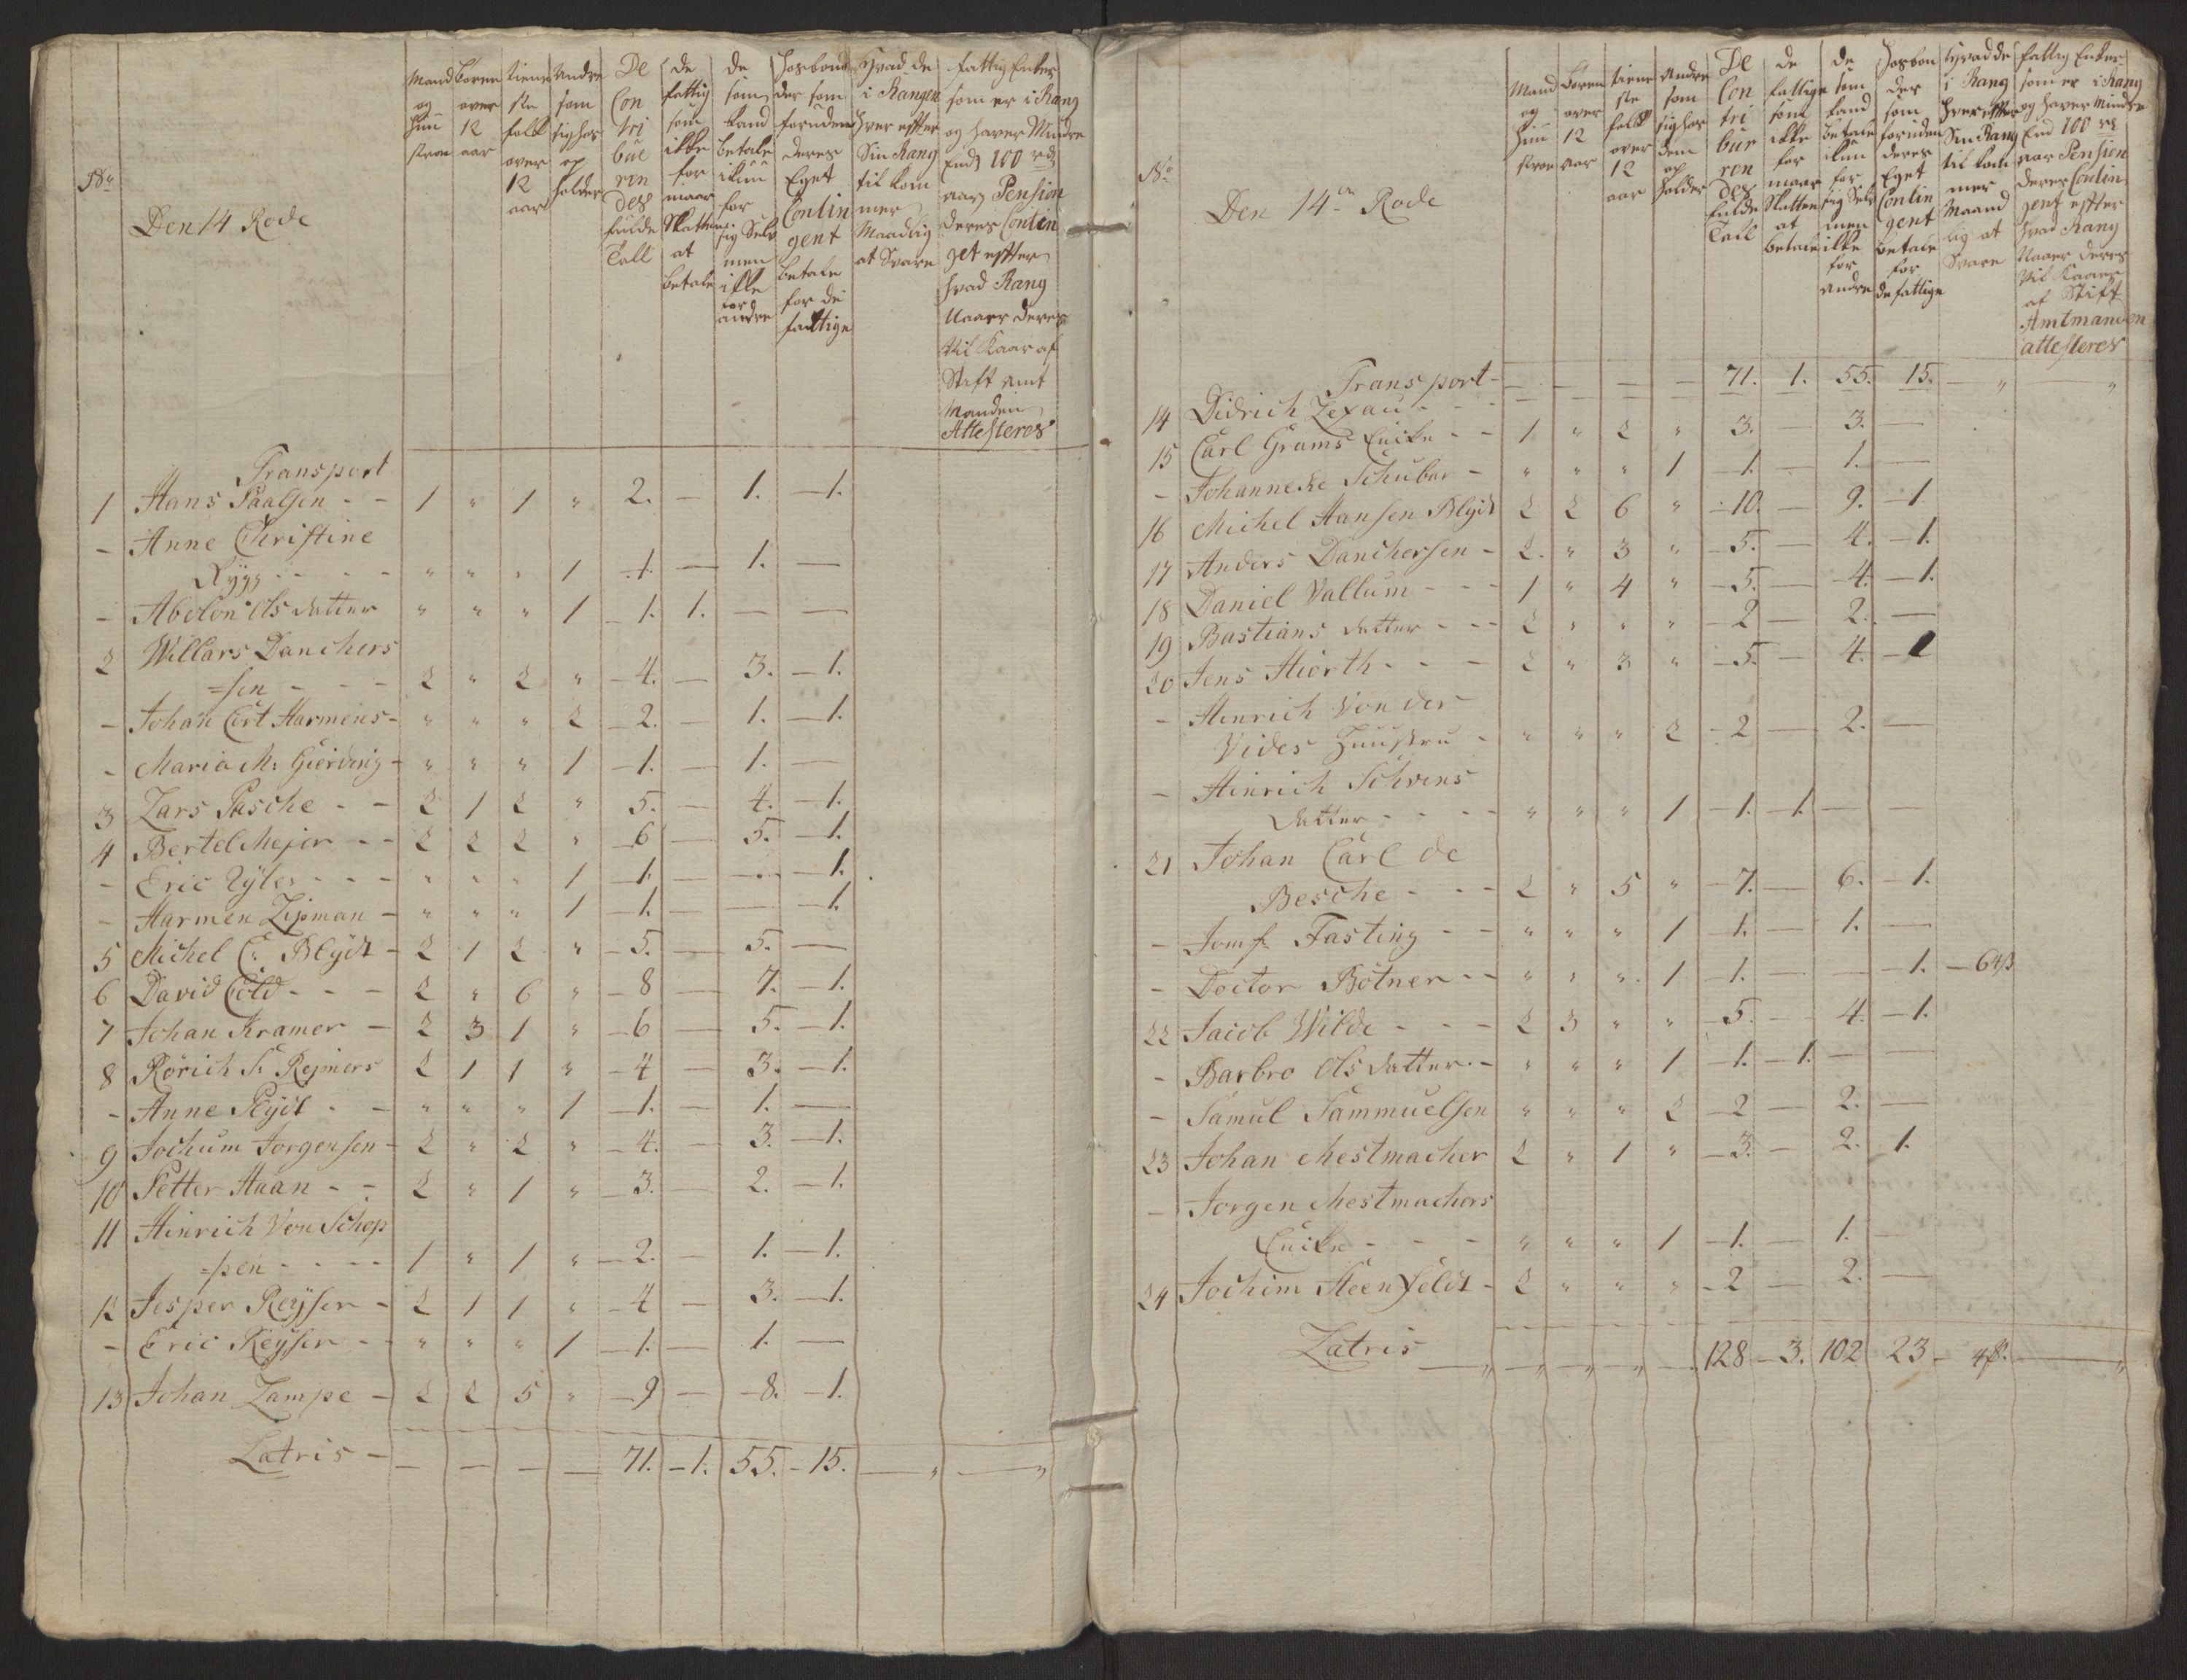 No
Den 14 Rode
Mand og Hustroe
Børen over 12 aar
tieneste folk over 12 aar
Andre som sig hos op holder
De Con tri bue ren des fulde Tall
de fattig som ikke for maar Skatten at betale
de som kand betale ikun for sig Selv men ikke for andre
Hosbonder som foruden deres Eget Contingent betale for de fattige
Hvad de i Rangen hver effter Sin Rang til kommer Maadlig at Svare
fattig Enker som er i Rang og haver Mindre End 100 rdr aarz Pension deres Continget effter hvad Rang Naaer deres Vil Kaar af Stift amt Manden Attesteres
Transport
1 Hans Paalsen - - 1 " 1 " 2. - 1. - 1.
- Anne Christine
Rygg - - - " " " 1 - 1. - 1. -
- Abelon Ols datter " " " 1 - 1. 1. - -
2 Willars Danchers
=sen - - - 2 " 2 " - 4. - 3. - 1.
- Johan Cort Harmens - " " " 2 - 2. - 1. - 1.
- Maria M: Gierding - " " " 1 - 1. - 1. -
3 Lars Pasche - - 2 1 2 " 5. - 4. - 1.
4 Bertel Mejer - - 2 2 2 " - 6 - 5. - 1.
- Eric - - - " " " 1 - 1. - - - 1.
- Harmen Lipman - " " " 1 - 1. - - - 1.
5 Michel C: Blydt - 2 1 2 " - 5. - 5. -
6 David Cold - - - 2 " 6 " - 8 - 7. - 1.
7 Johan Kramer - 2 3 1 " - 6 - 5. - 1.
8 Rörich S: Rejmers 2 1 1 " - 4 - 3. - 1.
- Anne Plydt - - " " " 1 - 1. - 1. -
9 Jochum Jorgensen - 2 " 2 " - 4. - 3. - 1.
10 Petter Haan - - 2 " 1 " - 3. - 2. - 1.
11 Hinrich Von Schep
=pen - - - - 1 " 1 " - 2. - 1. - 1.
12 Jesper Reyser - 2 1 1 " - 4 - 3. - 1.
- Eric Reyser - - " " " 1 - 1. - 1. -
13 Johan Lampe - 2 2 5 " - 9 - - 8. - 1.
Latris - - - - - 71. - 1. 55. - 15. - " - "
No
Den 14de Rode
Mand og Hustroe
Børen over 12 aar
tieneste folk over 12 aar
Andre som sig hos dem op holder
De Con tri bue ren des fulde Tall
de fattige som ikke for maar Skatten at betale
de som kand betale ikun for sig Selv men ikke for andre
Hosbonder som foruden deres Eget Contingent betale for de fattige
Hvad de i Rang hver effter Sin Rang til kommer Maandlig at Svare
fattig Enker som er i Rang og haver mindre End 100 rdr aar Pension deres Contingent effter hvad Rang Naaer deres Vil Kaaer af Stift Amtmanden attesteres
Transport - - - - - 71. 1. 55. 15. - " "
14 Didrich Lexau - - 1 " 2 " 3. - 3. -
15 Carl Grams Encke - - " " " 1 - 1. - 1. -
- Johanneke Schubar -
16 Michel Hansen Blydt 2 2 6 " - 10. - 9. - 1
17 Anders Danchersen - 2. " 3 " - 5. - 4. - 1.
18 Daniel Vallum - - - 1 " 4 " - 5. - 4. - 1.
19 Bastians datter - - - 2 " " " - 2 - 2. -
20 Jens Hiorth - - - 2 " 3 " - 5. - 4. - 1
- Henrich Von der
Vides Huustru - " " " 2 - 2 - 2. -
- Hinrich Schvens
datter - - - - " " " 1 - 1. - 1. - -
21 Johan Carl de
Besche - - - 2 " 5 " - 7. - 6. - 1.
- Jomf. Fasting - - " " " 1 - 1. - 1. -
- Doctor Bötner - - " " " 1 - 1. - - - 1. - 64ß
22 Jacob Wilde - - - 2 3 " " - 5. - 4. - 1.
- Barbro Ols datter - " " " 1 - 1. - 1. - -
- Samul Sammuelsen " " " 2 - 2 - 2. -
23 Johan Mestmacher 2 " 1 " - 3. - 2. 1.
- Jorgen Mestmachers
Encke - - - " " " 1 - 1. - 1. -
24 Jochim Steenfeldt - 2 " " " - 2 - 2. -
Latris - " - " - " - " - 128 - 3. 102 23 - 4ß. - "